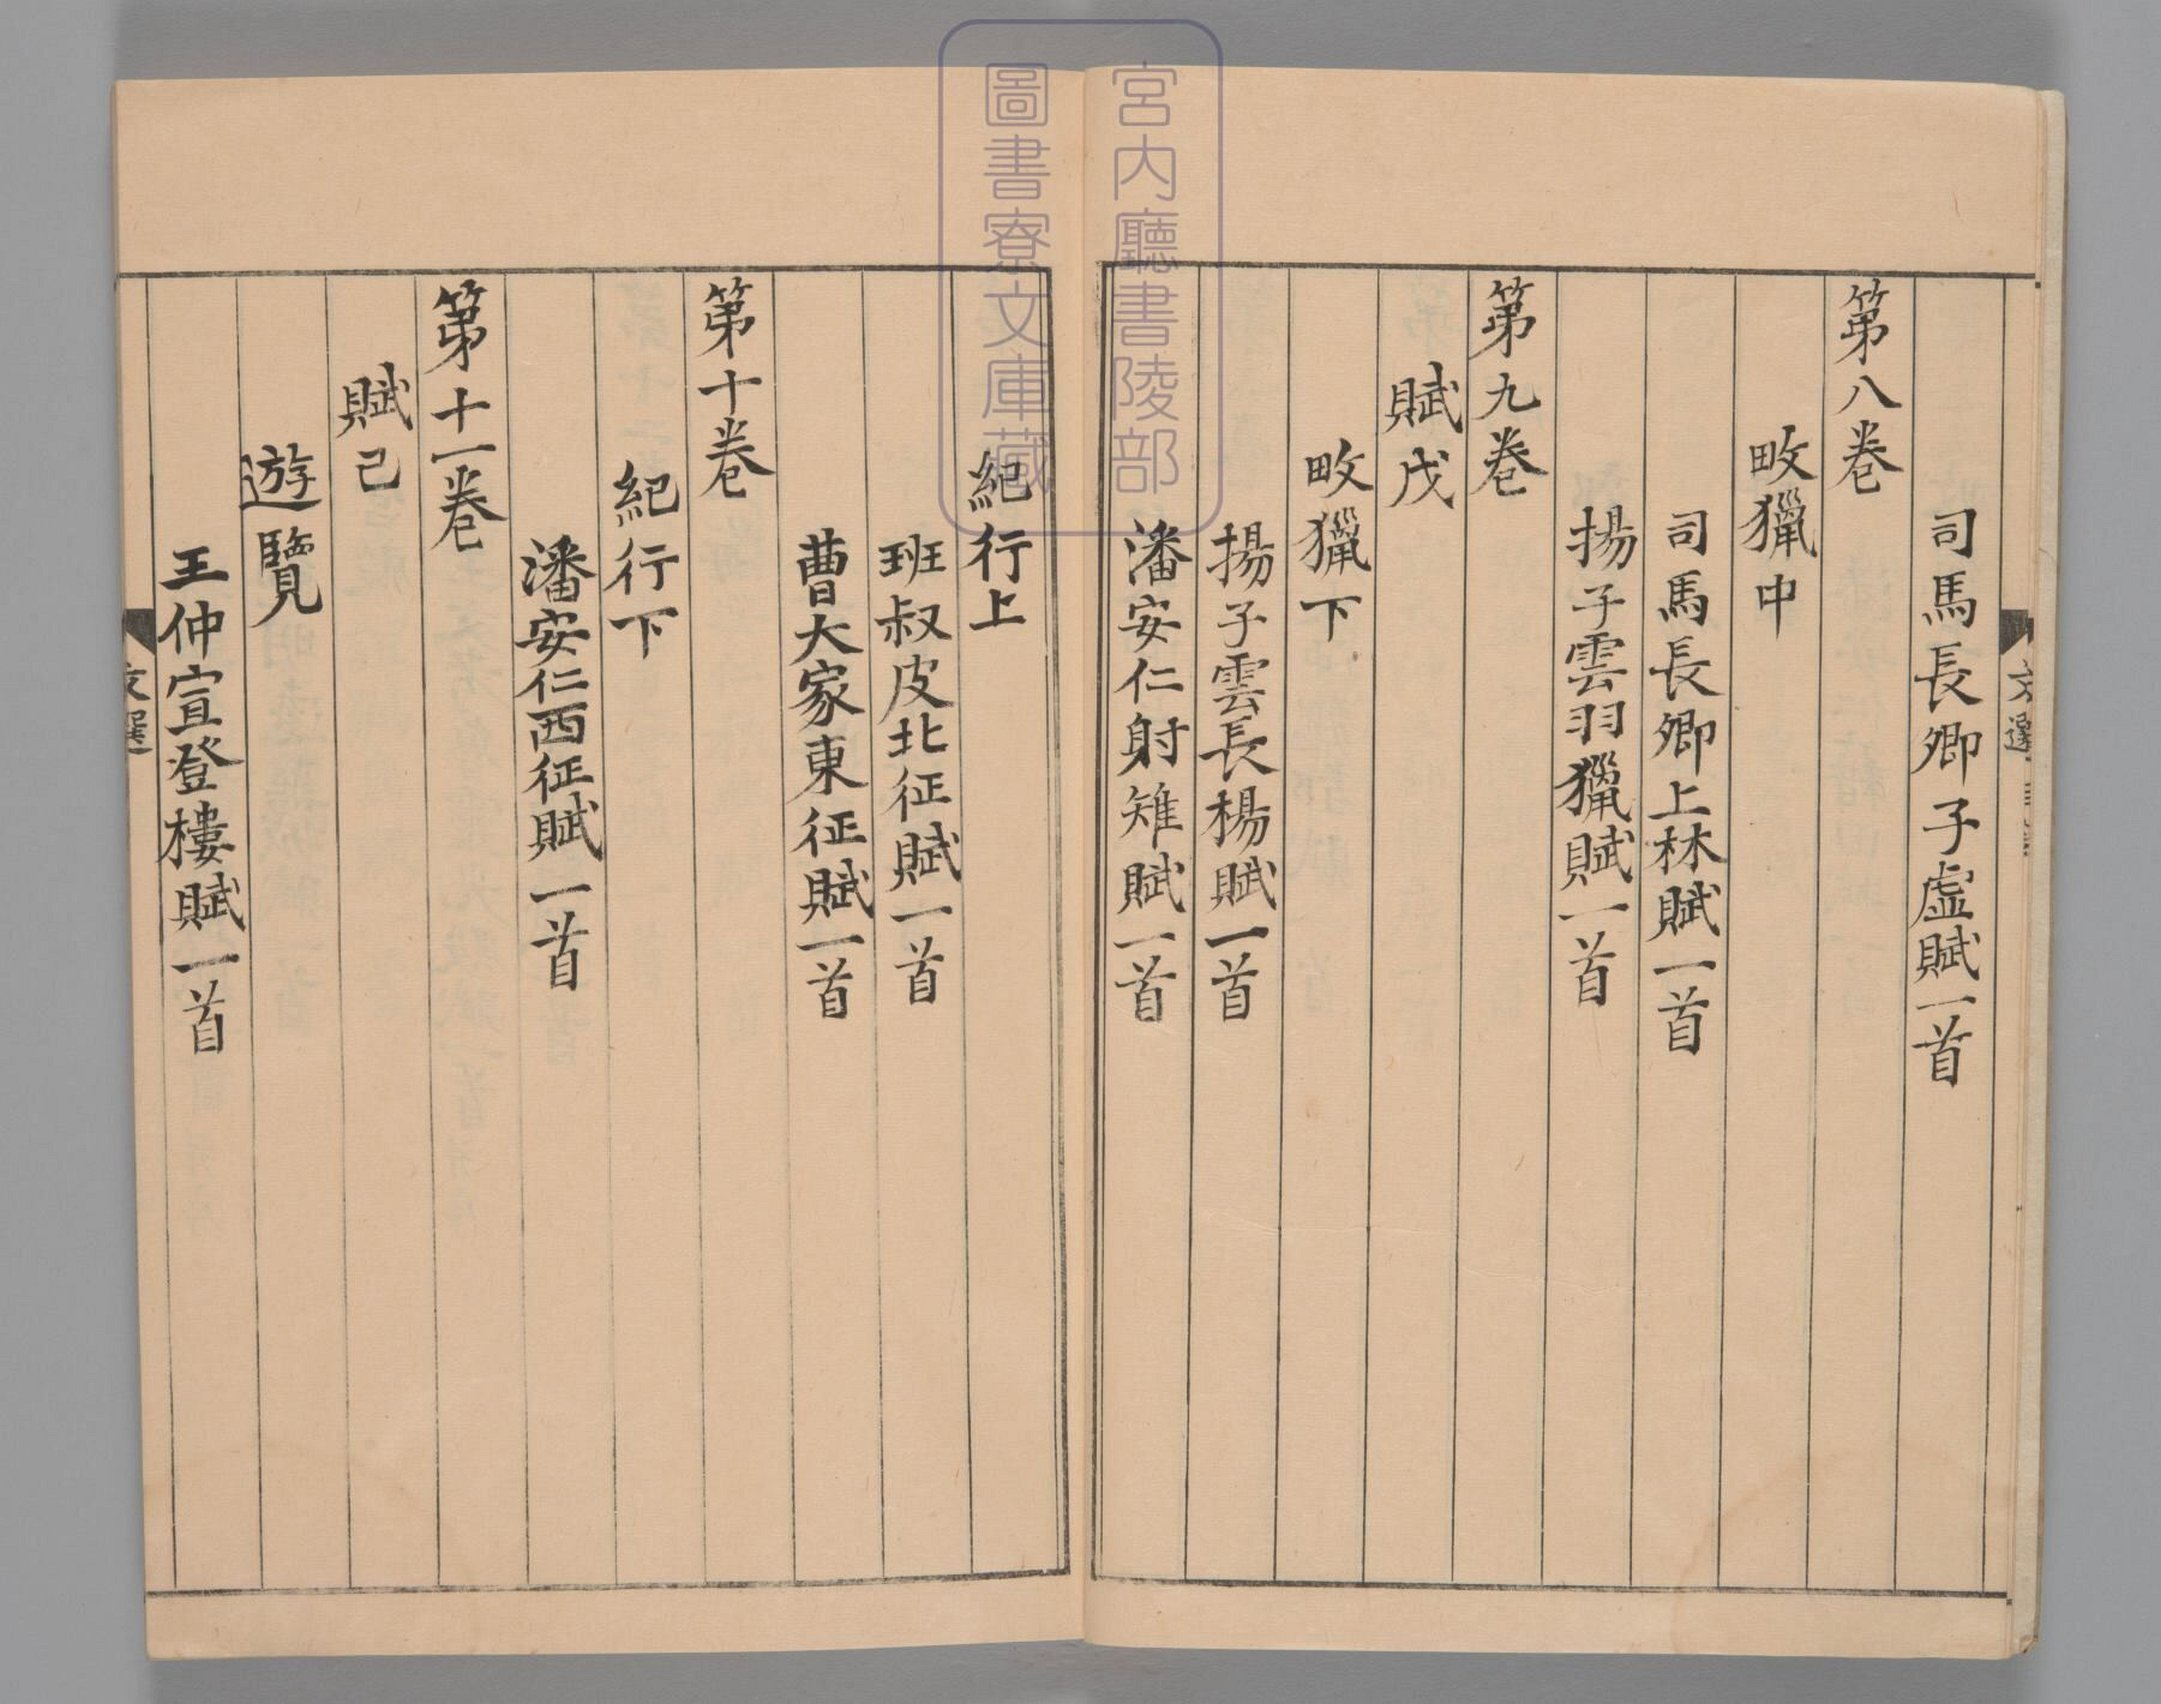 司馬長卿子虛賦一首
第八卷
畋獵中
司馬長卿上林賦一首
揚子雲羽獵賦一首
第九卷
賦戊
畋獵下
揚子雲長楊賦一首
潘安仁射雉賦一首
紀行上
班叔皮北征賦一首
曹大家東征賦一首
第十卷
紀行下
潘安仁西征賦一首
第十一卷
賦己
遊覽
王仲宣登樓賦一首
文選
文選
宮内廳書陵部
圖書寮文庫藏